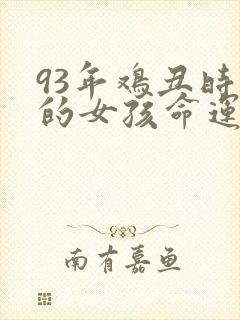 93年鸡丑时
的女孩命运
南有嘉鱼